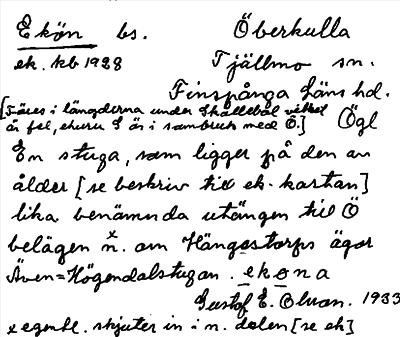 Ekön bs. Öberkulla
ek. kb 1928 Tjällmo sn.
Finspånga läns hd.
[Föres i längderna under Skällebol vilket
är fel, ehuru E är i sambruk med Ö.] Ögl
En stuga, som ligger på den av
ålder [se beskriv till ek. kartan]
lika benämnda utängen till Ö
belägen x n. om Hängestorps ägor
Även = Högendalstugan. ekona
Gustaf E. 1933
x egentl. skjuter in i n. delen [se ek]